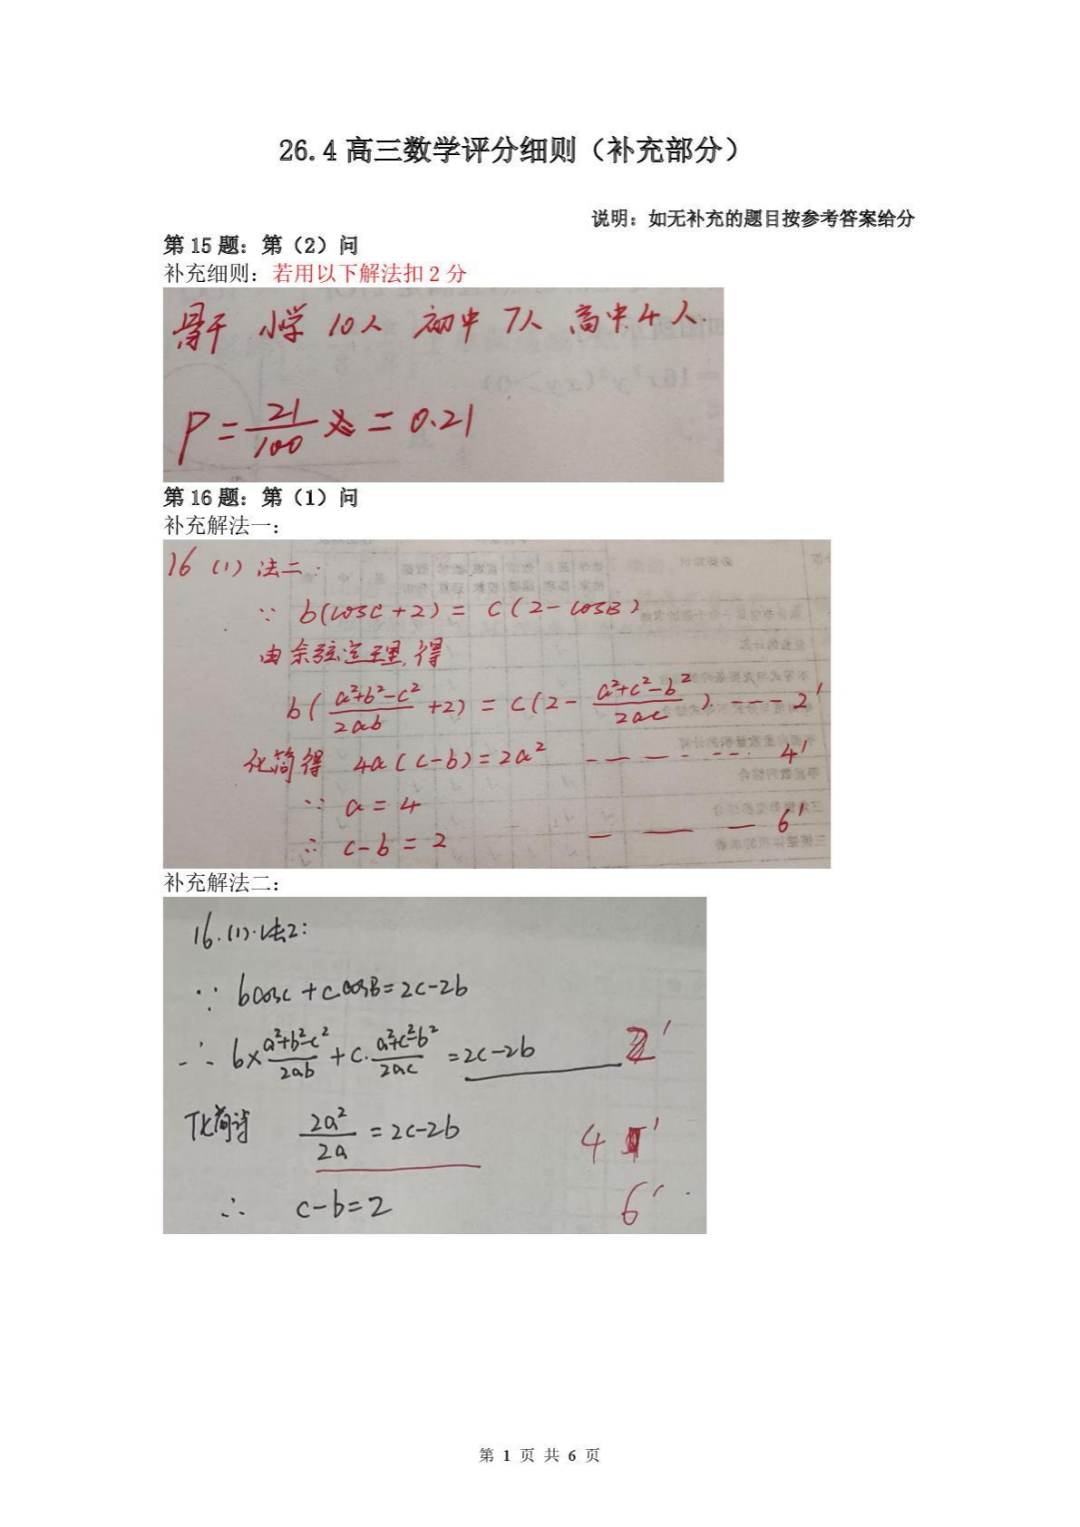 26.4高三数学评分细则（补充部分）
说明：如无补充的题目按参考答案给分
第15题：第（2）问
补充细则：若用以下解法扣2分
骨干 小学10人 初中7人 高中4人.
P=21/100=0.21
第16题：第（1）问
补充解法一：
16 (1) 法二：
∵ b(cosC+2)=c(2-cosB)
由余弦定理，得
b((a²+b²-c²)/2ab+2)=c(2-(a²+c²-b²)/2ac) ---- 2'
化简得 4a(c-b)=2a² ------- 4'
∵ a=4
∴ c-b=2 — — — 6'
补充解法二：
16.(1).法2：
∵ bcosC+ccosB=2c-2b
∴ b×(a²+b²-c²)/2ab+c·(a²+c²-b²)/2ac=2c-2b 2'
化简得 2a²/2a=2c-2b 4'
∴ c-b=2 6'
第 1 页 共 6 页